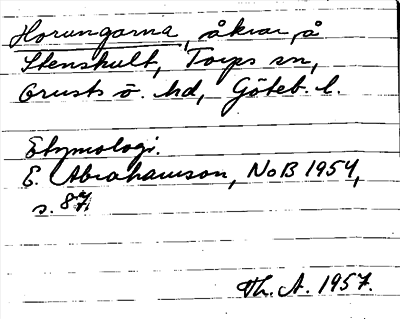 Horungarna, åkrar, å
Stenshult, Torps sn,
Orusts ö. hd, Göteb. l.
Etymologi.
E. Abrahamson, NoB 1954,
s. 87.
Th. A. 1957.